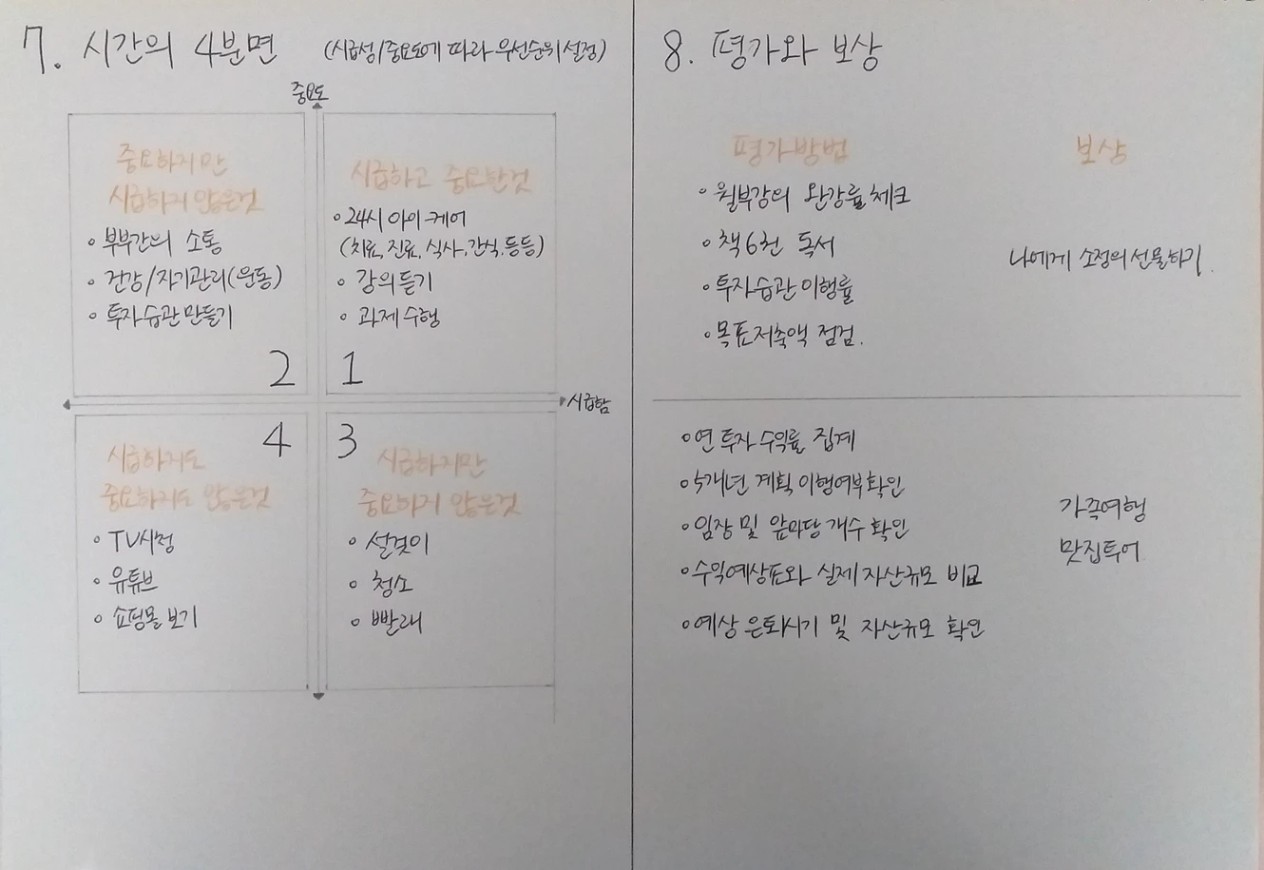 7. 시간의 4분면 (시급성/중요도에 따라 우선순위 설정)
중요도
중요하지만
시급하지 않은것
• 부부간의 소통
• 건강/자기관리(운동)
• 투자습관 만들기
2
시급하고 중요한것
• 24시 아이 케어
(치료, 진료, 식사, 간식, 등등)
• 강의듣기
• 과제수행
1
시급함
4
시급하지도
중요하지도 않은것
• TV시청
• 유튜브
• 쇼핑몰 보기
3
시급하지만
중요하지 않은것
• 설겆이
• 청소
• 빨래
8. 평가와 보상
평가방법
• 월부강의 완강률 체크
• 책 6천 독서
• 투자습관 이행률
• 목표저축액 점검.
보상
나에게 소정의 선물하기.
• 연 투자 수익률 집계
• 5개년 계획 이행여부 확인
• 임장 및 앞마당 개수 확인
• 수익예상표와 실제 자산규모 비교
• 예상 은퇴시기 및 자산규모 확인
가족여행
맛집투어